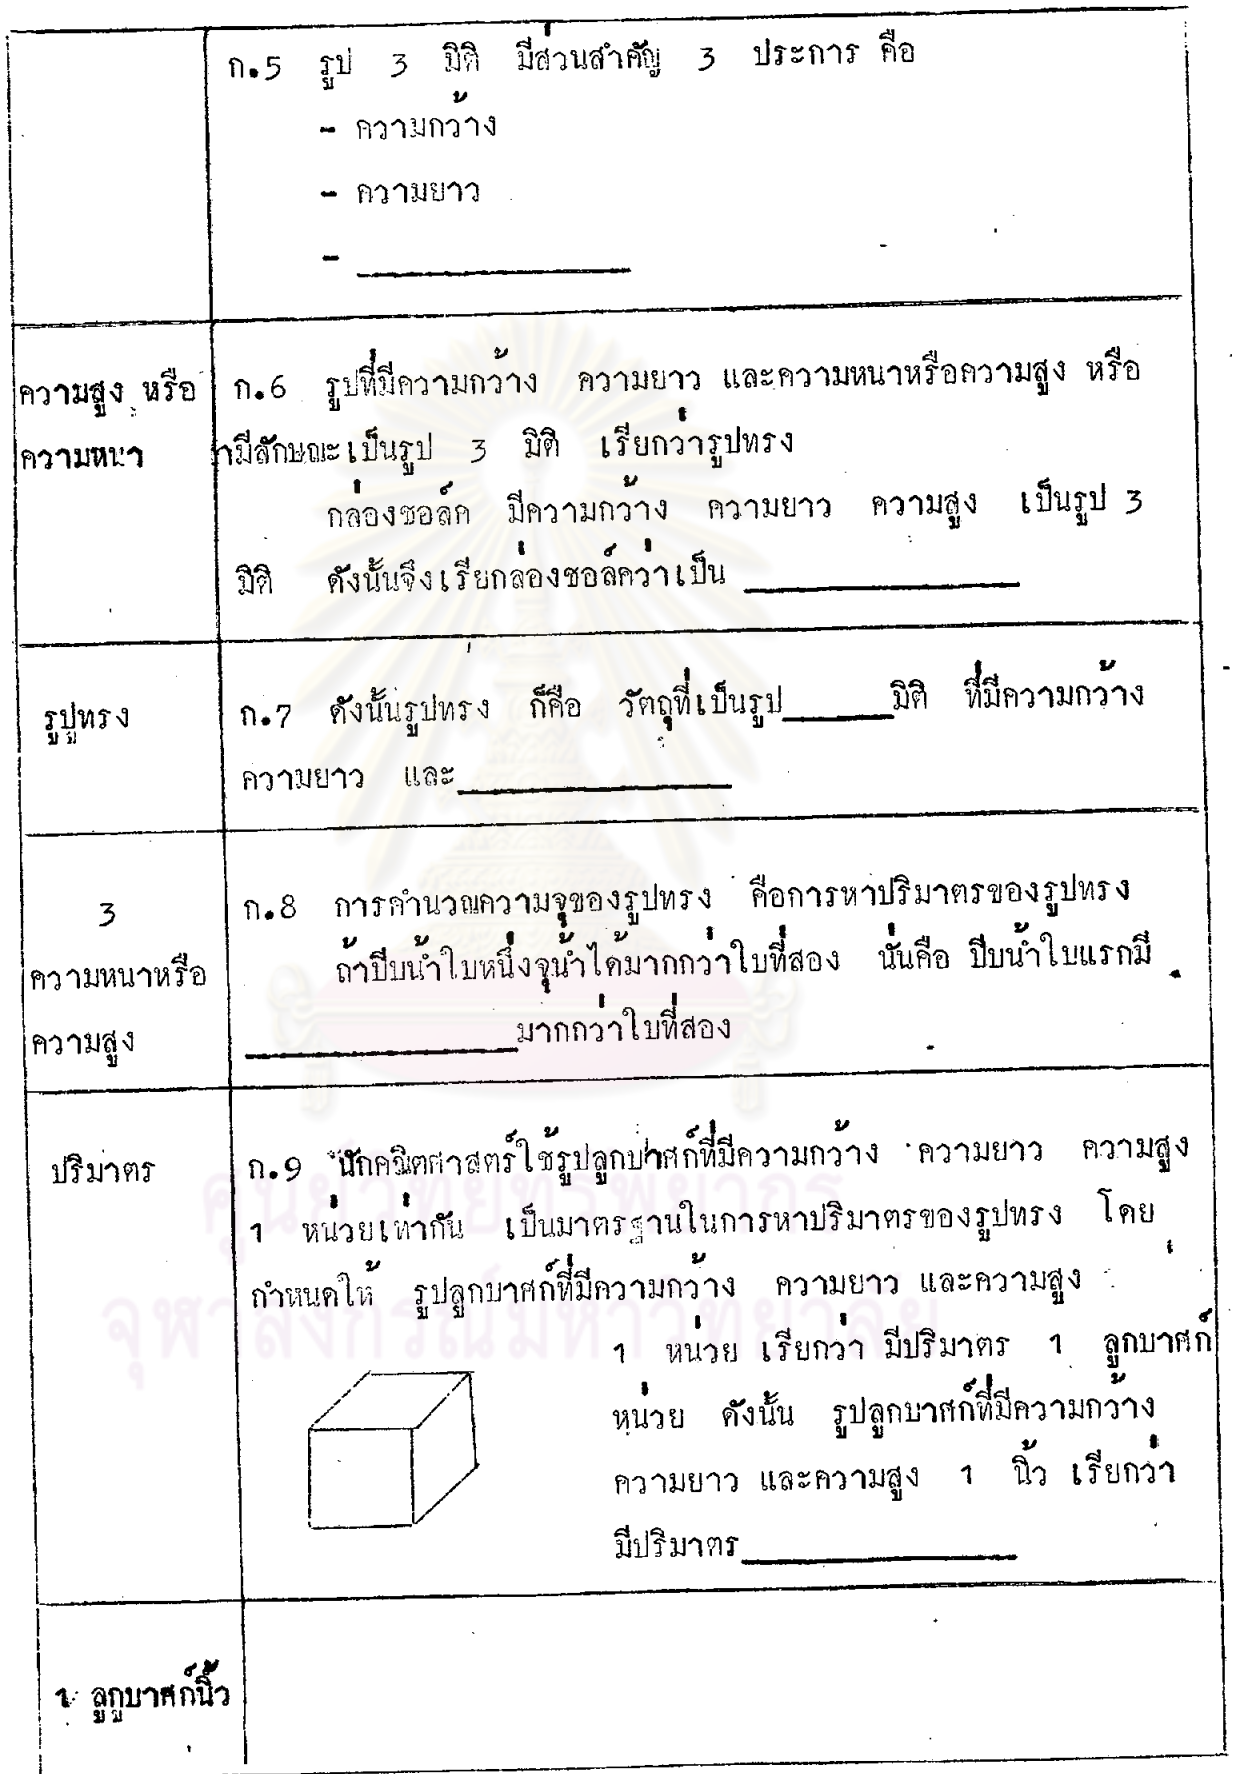 ก.5 รูป 3 มิติ มีส่วนสำคัญ 3 ประการ คือ
- ความกว้าง
- ความยาว
- ____________
ความสูง หรือ
ความหนา
ก.6 รูปที่มีความกว้าง ความยาว และความหนาหรือความสูง หรือ
ามีลักษณะเป็นรูป 3 มิติ เรียกว่ารูปทรง
กล่องชอล์ค มีความกว้าง ความยาว ความสูง เป็นรูป 3
มิติ ดังนั้นจึงเรียกล่องชอล์คว่าเป็น ____________
รูปทรง
ก.7 ดังนั้นรูปทรง ก็คือ วัตถุที่เป็นรูป_____มิติ ที่มีความกว้าง
ความยาว และ____________
3
ความหนาหรือ
ความสูง
ก.8 การคำนวณความจุของรูปทรง คือการหาปริมาตรของรูปทรง
ถ้าปีบน้ำใบหนึ่งจุน้ำได้มากกว่าใบที่สอง นั่นคือ ปีบน้ำใบแรกมี
____________มากกว่าใบที่สอง
ปริมาตร
ก.9 นักคณิตศาสตร์ใช้รูปลูกบาศก์ที่มีความกว้าง ความยาว ความสูง
1 หน่วยเท่ากัน เป็นมาตรฐานในการหาปริมาตรของรูปทรง โดย
กำหนดให้ รูปลูกบาศก์ที่มีความกว้าง ความยาว และความสูง
1 หน่วย เรียกว่า มีปริมาตร 1 ลูกบาศก์
หน่วย ดังนั้น รูปลูกบาศก์ที่มีความกว้าง
ความยาว และความสูง 1 นิ้ว เรียกว่า
มีปริมาตร____________
1 ลูกบาศก์นิ้ว
ศูนย์วิทยทรัพยากร
จุฬาลงกรณ์มหาวิทยาลัย